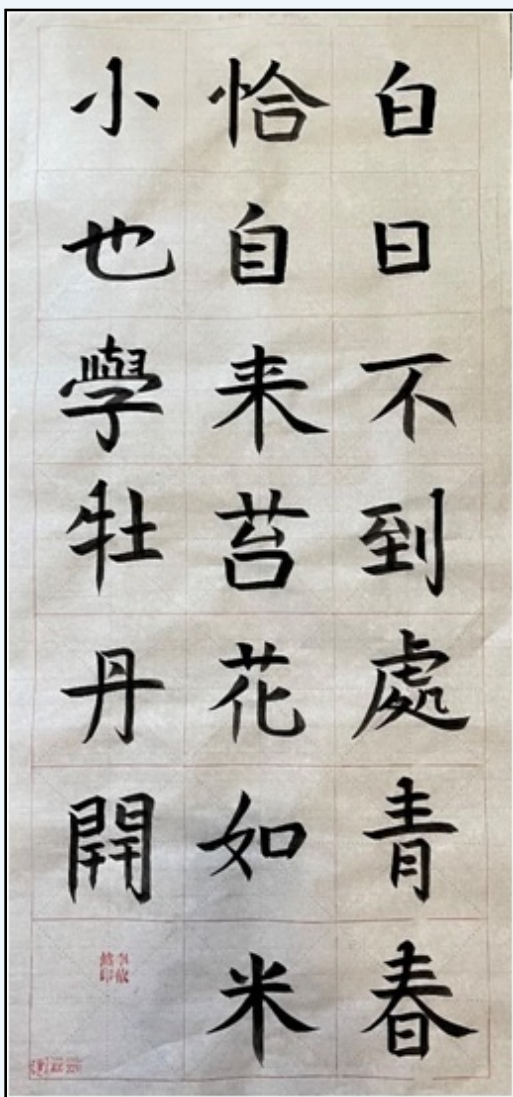 白日不到處青春
恰自来苔花如米
小也學牡丹開